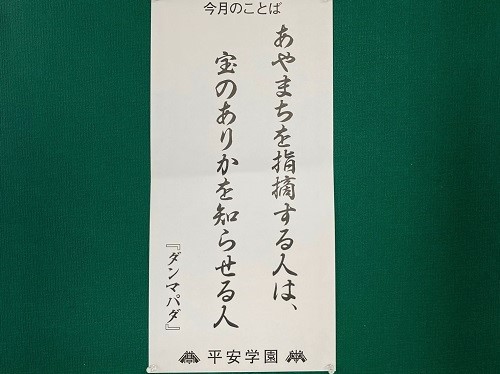 今月のことば
あやまちを指摘する人は、
宝のありかを知らせる人
『ダンマパダ』
平安学園